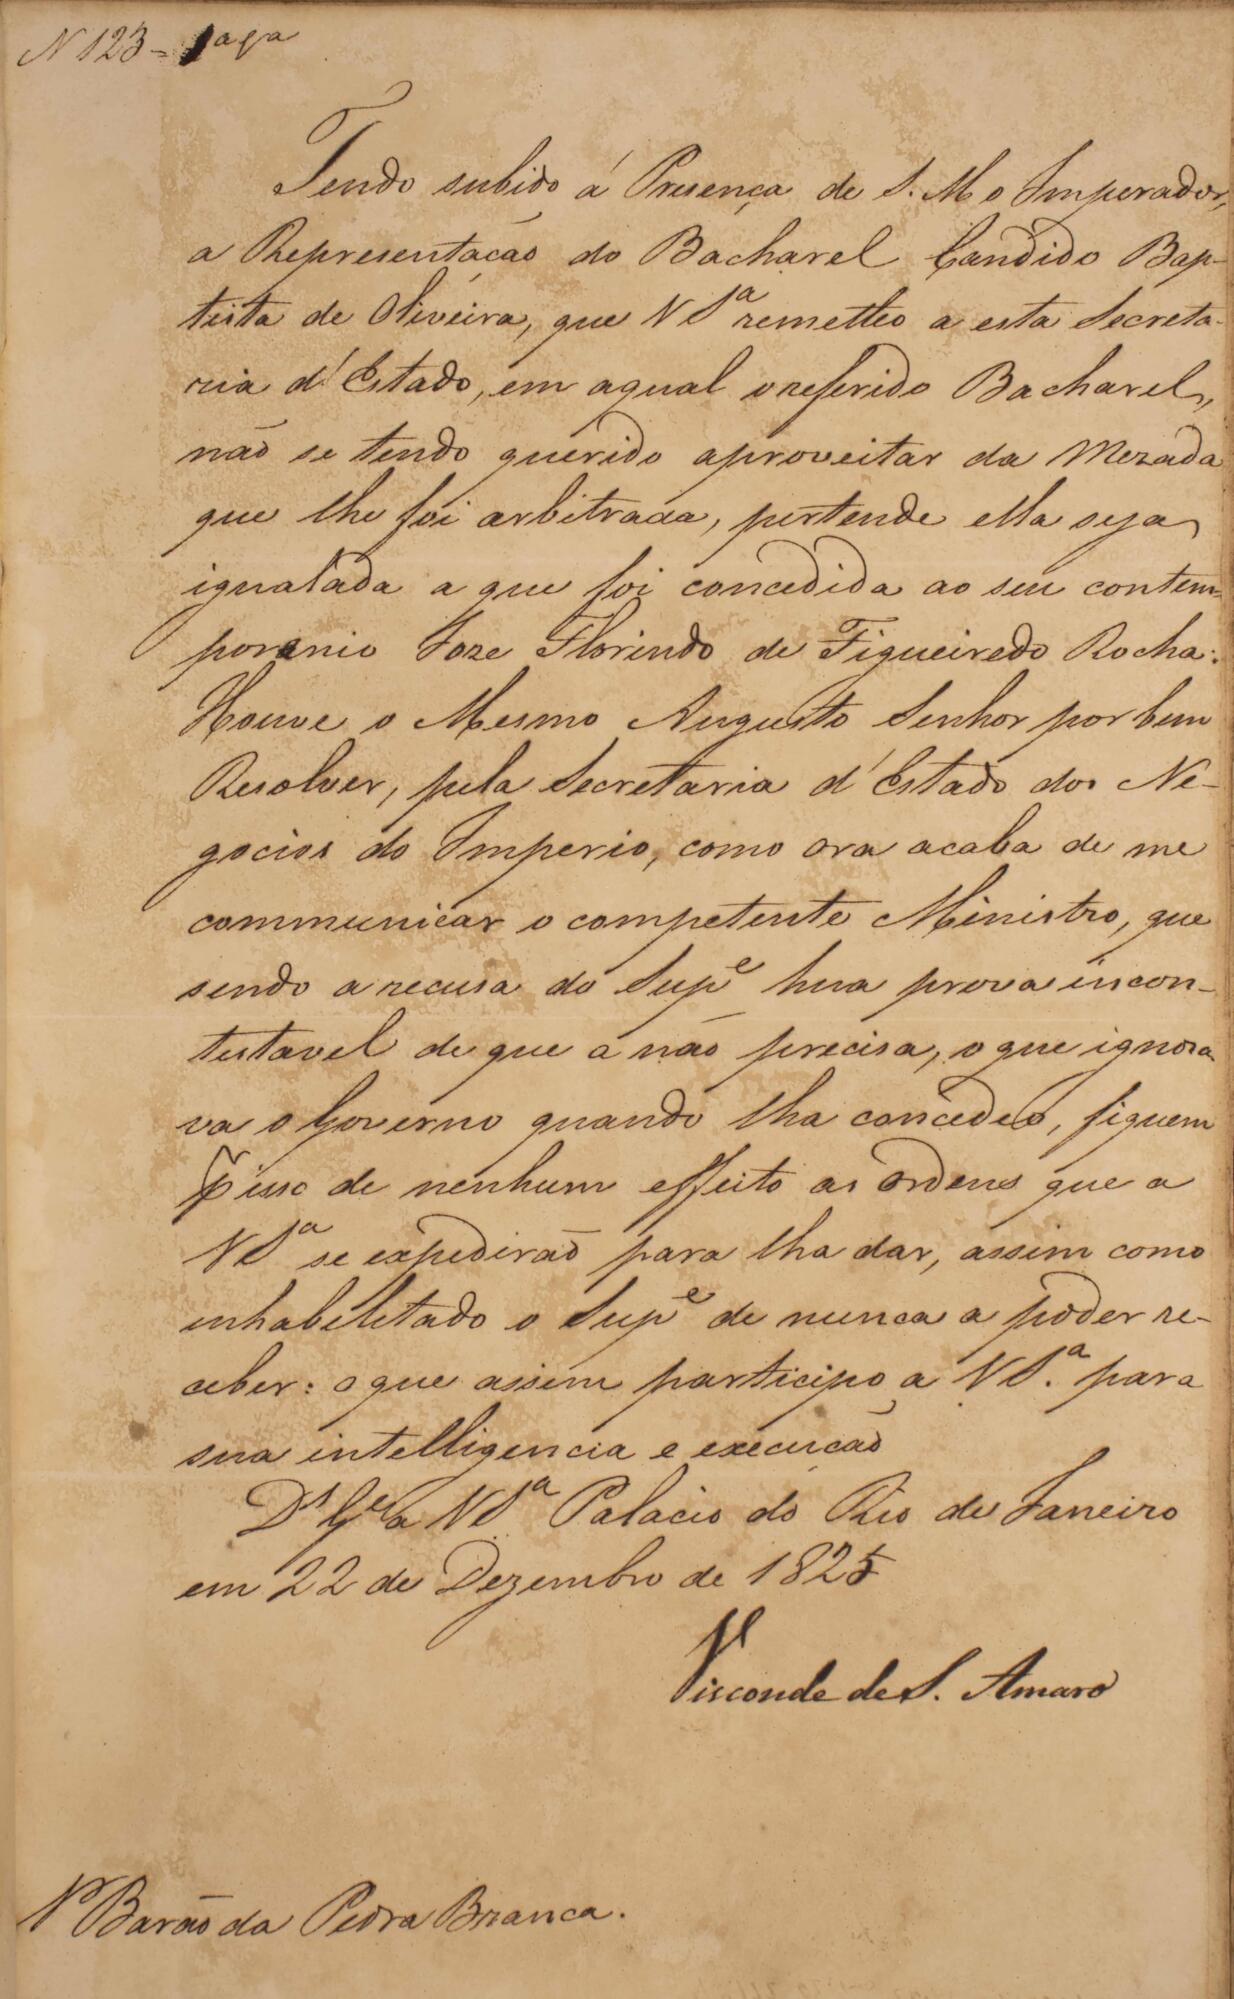 N 123 =
Tendo subido á Presença de S. M. o Imperador,
a Representação do Bacharel Candido Bap-
tista de Oliveira, que V Sª remetteo a esta Secreta-
ria d'Estado, em aqual o referido Bacharel,
não se tendo querido aproveitar da Mezada
que lhe foi arbitrada, pertende ella seja
igualada a que foi concedida ao seu contem-
poranio Joze Florindo de Figueiredo Rocha:
Houve o Mesmo Augusto Senhor por bem
Resolver, pela Secretaria d'Estado dos Ne-
gocios do Imperio, como ora acaba de me
communicar o competente Ministro, que
sendo a recusa do Supᵉ hua prova incon-
testavel de que a não precisa, o que ignora-
va o Governo quando lha concedeo, fiquem
p̃ isso de nenhum effeito as Ordens que a
V Sª se expedirão para lha dar, assim como
inhabelitado o Supᵉ de nunca a poder re-
ceber: o que assim participo a V Sª. para
sua intelligencia e execução
Dˢ Gᵉ a V Sª Palacio do Rio de Janeiro
em 22 de Dezembro de 1825
Visconde de S. Amaro
Sʳ Barão da Pedra Branca.